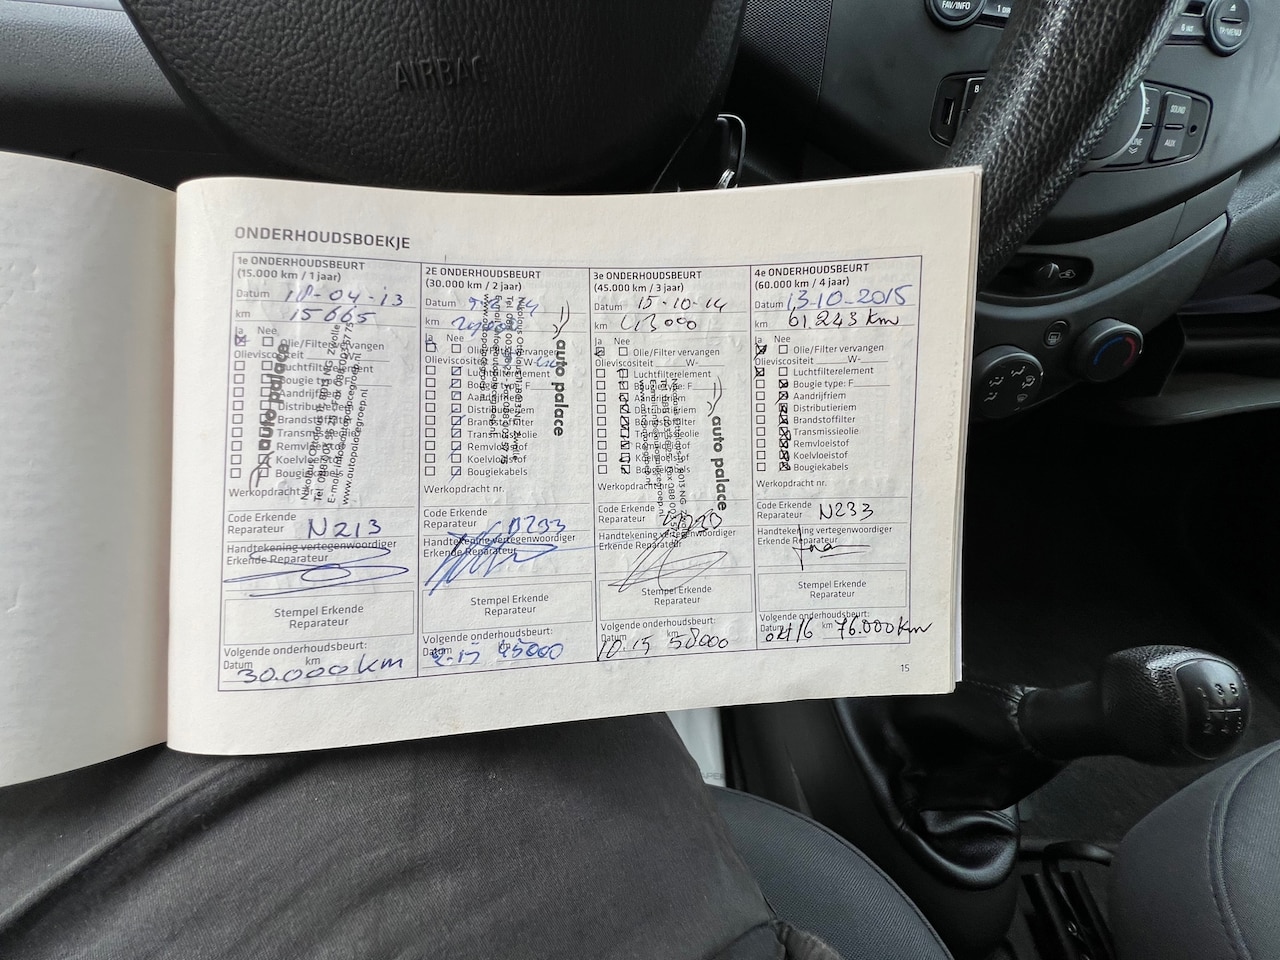 FAV/INFO
1 DIR
6 INS
TP/MENU
SOUND
AUX
AIRBAG
ONDERHOUDSBOEKJE
1e ONDERHOUDSBEURT
(15.000 km / 1 jaar)
Datum
-04-13
km 15665
Ja Nee
Olie/Filter vervangen
Olieviscositeit
Luchtfilterelement
Bougie type
Aandrijfriem
Distributieriem
Brandstoffilter
Transmissieolie
Remvloeistof
Koelvloeistof
Bougiekabels
auto palace
www.autopalacegroep.nl
Werkopdracht nr.
Code Erkende
Reparateur N213
Handtekening vertegenwoordiger
Erkende Reparateur
Stempel Erkende
Reparateur
Volgende onderhoudsbeurt:
Datum km
30.000 km
2E ONDERHOUDSBEURT
(30.000 km / 2 jaar)
Datum
km
Ja Nee
Olie/Filter vervangen
Olieviscositeit
Luchtfilterelement
Bougie type: F
Aandrijfriem
Distributieriem
Brandstoffilter
Transmissieolie
Remvloeistof
Koelvloeistof
Bougiekabels
auto palace
Werkopdracht nr.
Code Erkende
Reparateur
Handtekening vertegenwoordiger
Erkende Reparateur
Stempel Erkende
Reparateur
Volgende onderhoudsbeurt:
Datum km
45000
3e ONDERHOUDSBEURT
(45.000 km / 3 jaar)
Datum 15-10-14
km 43000
Ja Nee
Olie/Filter vervangen
Olieviscositeit W-
Luchtfilterelement
Bougie type: F
Aandrijfriem
Distributieriem
Brandstoffilter
Transmissieolie
Remvloeistof
Koelvloeistof
Bougiekabels
auto palace
Werkopdracht nr.
Code Erkende
Reparateur
Handtekening vertegenwoordiger
Erkende Reparateur
Stempel Erkende
Reparateur
Volgende onderhoudsbeurt:
Datum km
10.15 58000
4e ONDERHOUDSBEURT
(60.000 km / 4 jaar)
Datum 13-10-2015
km 61.243 km
Ja Nee
Olie/Filter vervangen
Olieviscositeit W-
Luchtfilterelement
Bougie type: F
Aandrijfriem
Distributieriem
Brandstoffilter
Transmissieolie
Remvloeistof
Koelvloeistof
Bougiekabels
Werkopdracht nr.
Code Erkende
Reparateur N233
Handtekening vertegenwoordiger
Erkende Reparateur
Stempel Erkende
Reparateur
Volgende onderhoudsbeurt:
Datum km
okt/6 76.000 km
15